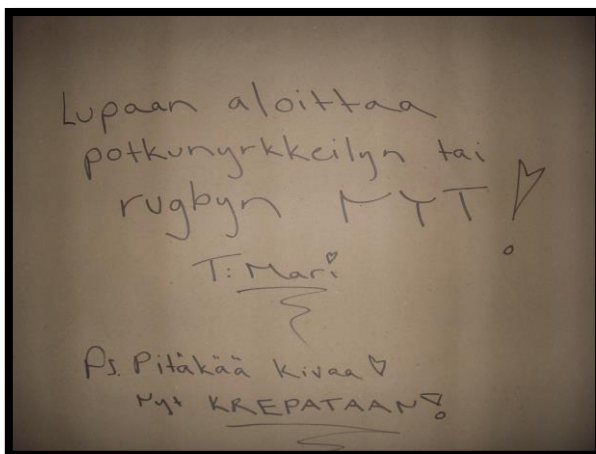 Lupaan aloittaa
potkunyrkkeilyn tai
rugbyn NYT!
T: Mari
Ps. Pitäkää kivaa ♡
Nyt KREPATAAN!